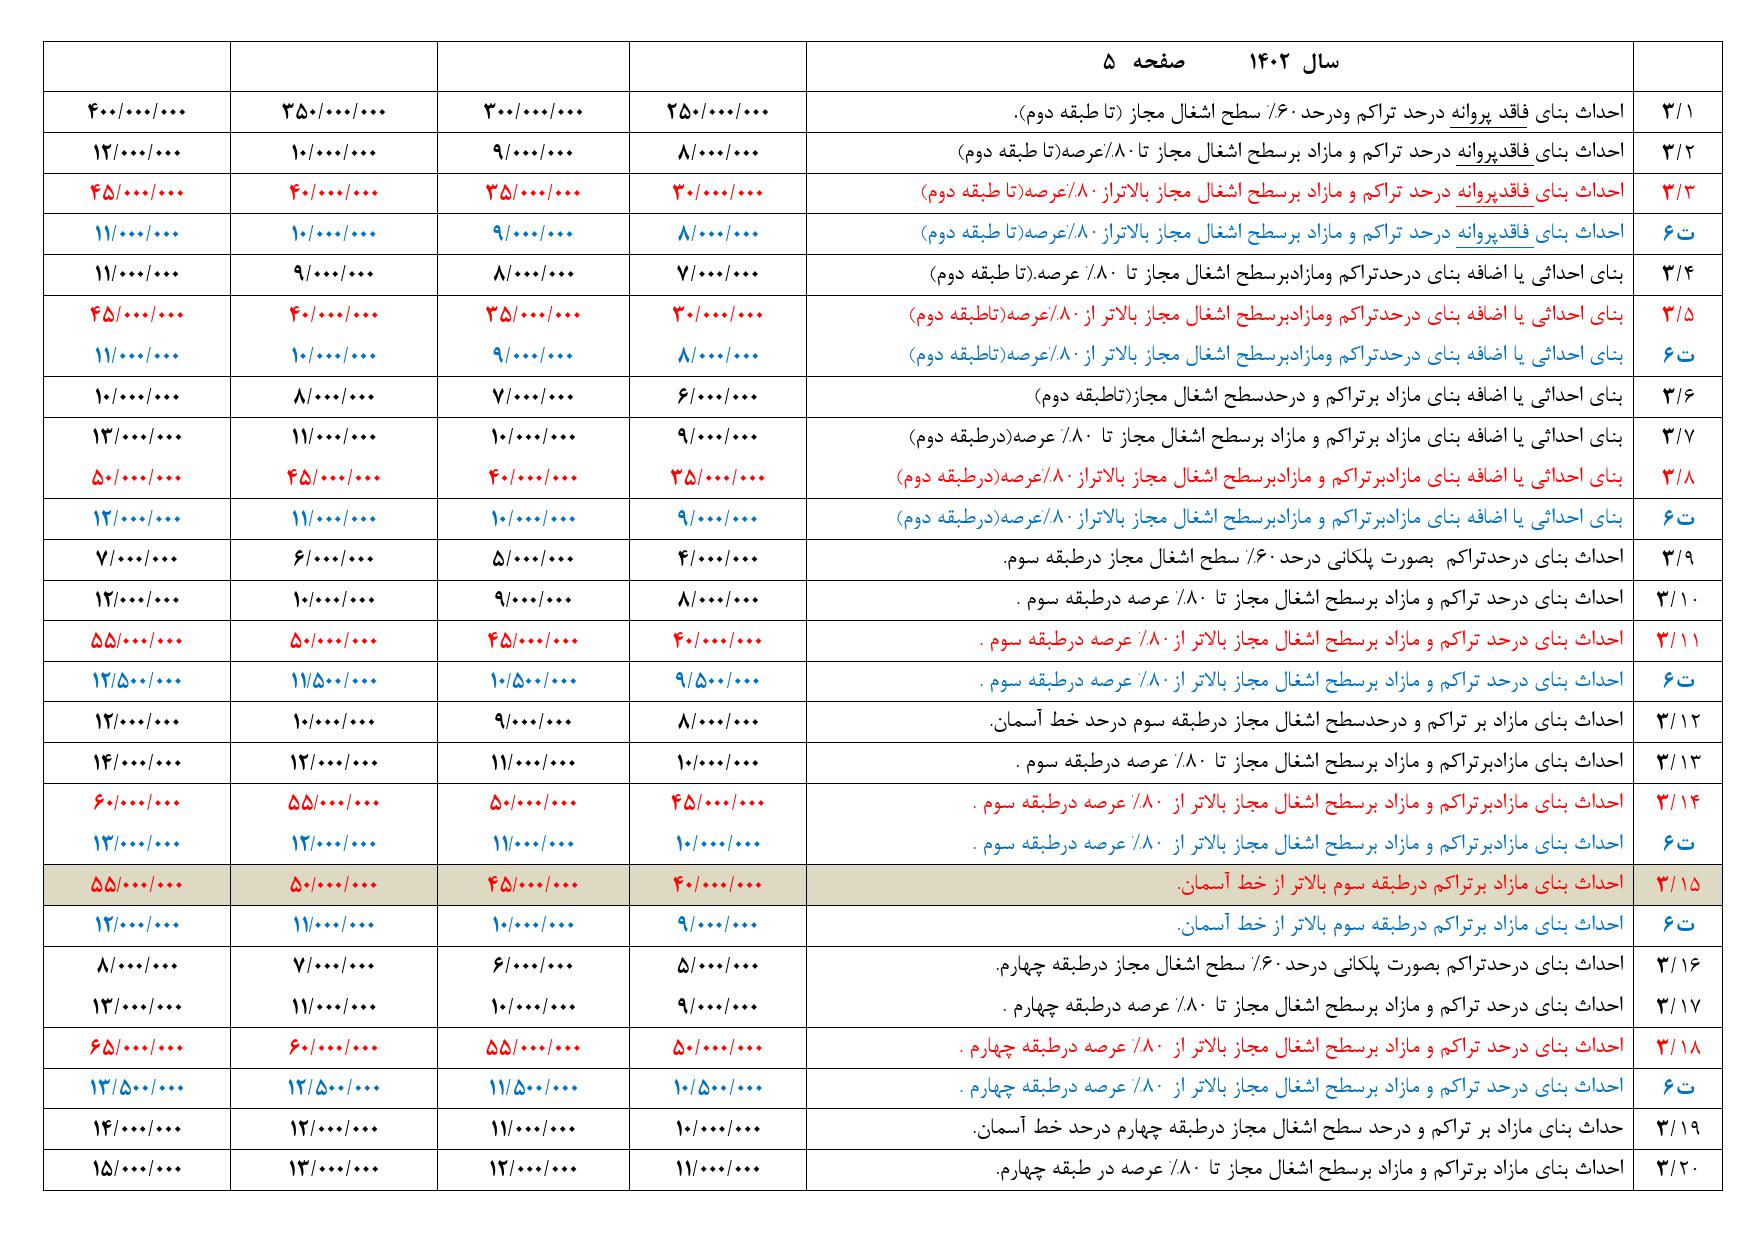 سال ۱۴۰۲ صفحه ۵
۳/۱ احداث بنای فاقد پروانه درحد تراکم ودرحد۶۰٪ سطح اشغال مجاز (تا طبقه دوم). ۲۵۰/۰۰۰/۰۰۰ ۳۰۰/۰۰۰/۰۰۰ ۳۵۰/۰۰۰/۰۰۰ ۴۰۰/۰۰۰/۰۰۰
۳/۲ احداث بنای فاقدپروانه درحد تراکم و مازاد برسطح اشغال مجاز تا۸۰٪عرصه(تا طبقه دوم) ۸/۰۰۰/۰۰۰ ۹/۰۰۰/۰۰۰ ۱۰/۰۰۰/۰۰۰ ۱۲/۰۰۰/۰۰۰
۳/۳ احداث بنای فاقدپروانه درحد تراکم و مازاد برسطح اشغال مجاز بالاتراز۸۰٪عرصه(تا طبقه دوم) ۳۰/۰۰۰/۰۰۰ ۳۵/۰۰۰/۰۰۰ ۴۰/۰۰۰/۰۰۰ ۴۵/۰۰۰/۰۰۰
ت۶ احداث بنای فاقدپروانه درحد تراکم و مازاد برسطح اشغال مجاز بالاتراز۸۰٪عرصه(تا طبقه دوم) ۸/۰۰۰/۰۰۰ ۹/۰۰۰/۰۰۰ ۱۰/۰۰۰/۰۰۰ ۱۱/۰۰۰/۰۰۰
۳/۴ بنای احداثی یا اضافه بنای درحدتراکم ومازادبرسطح اشغال مجاز تا ۸۰٪ عرصه.(تا طبقه دوم) ۷/۰۰۰/۰۰۰ ۸/۰۰۰/۰۰۰ ۹/۰۰۰/۰۰۰ ۱۱/۰۰۰/۰۰۰
۳/۵ بنای احداثی یا اضافه بنای درحدتراکم ومازادبرسطح اشغال مجاز بالاتر از۸۰٪عرصه(تاطبقه دوم) ۳۰/۰۰۰/۰۰۰ ۳۵/۰۰۰/۰۰۰ ۴۰/۰۰۰/۰۰۰ ۴۵/۰۰۰/۰۰۰
ت۶ بنای احداثی یا اضافه بنای درحدتراکم ومازادبرسطح اشغال مجاز بالاتر از۸۰٪عرصه(تاطبقه دوم) ۸/۰۰۰/۰۰۰ ۹/۰۰۰/۰۰۰ ۱۰/۰۰۰/۰۰۰ ۱۱/۰۰۰/۰۰۰
۳/۶ بنای احداثی یا اضافه بنای مازاد برتراکم و درحدسطح اشغال مجاز(تاطبقه دوم) ۶/۰۰۰/۰۰۰ ۷/۰۰۰/۰۰۰ ۸/۰۰۰/۰۰۰ ۱۰/۰۰۰/۰۰۰
۳/۷ بنای احداثی یا اضافه بنای مازاد برتراکم و مازاد برسطح اشغال مجاز تا ۸۰٪ عرصه(درطبقه دوم) ۹/۰۰۰/۰۰۰ ۱۰/۰۰۰/۰۰۰ ۱۱/۰۰۰/۰۰۰ ۱۳/۰۰۰/۰۰۰
۳/۸ بنای احداثی یا اضافه بنای مازادبرتراکم و مازادبرسطح اشغال مجاز بالاتراز۸۰٪عرصه(درطبقه دوم) ۳۵/۰۰۰/۰۰۰ ۴۰/۰۰۰/۰۰۰ ۴۵/۰۰۰/۰۰۰ ۵۰/۰۰۰/۰۰۰
ت۶ بنای احداثی یا اضافه بنای مازادبرتراکم و مازادبرسطح اشغال مجاز بالاتراز۸۰٪عرصه(درطبقه دوم) ۹/۰۰۰/۰۰۰ ۱۰/۰۰۰/۰۰۰ ۱۱/۰۰۰/۰۰۰ ۱۲/۰۰۰/۰۰۰
۳/۹ احداث بنای درحدتراکم بصورت پلکانی درحد۶۰٪ سطح اشغال مجاز درطبقه سوم. ۴/۰۰۰/۰۰۰ ۵/۰۰۰/۰۰۰ ۶/۰۰۰/۰۰۰ ۷/۰۰۰/۰۰۰
۳/۱۰ احداث بنای درحد تراکم و مازاد برسطح اشغال مجاز تا ۸۰٪ عرصه درطبقه سوم . ۸/۰۰۰/۰۰۰ ۹/۰۰۰/۰۰۰ ۱۰/۰۰۰/۰۰۰ ۱۲/۰۰۰/۰۰۰
۳/۱۱ احداث بنای درحد تراکم و مازاد برسطح اشغال مجاز بالاتر از۸۰٪ عرصه درطبقه سوم . ۴۰/۰۰۰/۰۰۰ ۴۵/۰۰۰/۰۰۰ ۵۰/۰۰۰/۰۰۰ ۵۵/۰۰۰/۰۰۰
ت۶ احداث بنای درحد تراکم و مازاد برسطح اشغال مجاز بالاتر از۸۰٪ عرصه درطبقه سوم . ۹/۵۰۰/۰۰۰ ۱۰/۵۰۰/۰۰۰ ۱۱/۵۰۰/۰۰۰ ۱۲/۵۰۰/۰۰۰
۳/۱۲ احداث بنای مازاد بر تراکم و درحدسطح اشغال مجاز درطبقه سوم درحد خط آسمان. ۸/۰۰۰/۰۰۰ ۹/۰۰۰/۰۰۰ ۱۰/۰۰۰/۰۰۰ ۱۲/۰۰۰/۰۰۰
۳/۱۳ احداث بنای مازادبرتراکم و مازاد برسطح اشغال مجاز تا ۸۰٪ عرصه درطبقه سوم . ۱۰/۰۰۰/۰۰۰ ۱۱/۰۰۰/۰۰۰ ۱۲/۰۰۰/۰۰۰ ۱۴/۰۰۰/۰۰۰
۳/۱۴ احداث بنای مازادبرتراکم و مازاد برسطح اشغال مجاز بالاتر از ۸۰٪ عرصه درطبقه سوم . ۴۵/۰۰۰/۰۰۰ ۵۰/۰۰۰/۰۰۰ ۵۵/۰۰۰/۰۰۰ ۶۰/۰۰۰/۰۰۰
ت۶ احداث بنای مازادبرتراکم و مازاد برسطح اشغال مجاز بالاتر از ۸۰٪ عرصه درطبقه سوم . ۱۰/۰۰۰/۰۰۰ ۱۱/۰۰۰/۰۰۰ ۱۲/۰۰۰/۰۰۰ ۱۳/۰۰۰/۰۰۰
۳/۱۵ احداث بنای مازاد برتراکم درطبقه سوم بالاتر از خط آسمان. ۴۰/۰۰۰/۰۰۰ ۴۵/۰۰۰/۰۰۰ ۵۰/۰۰۰/۰۰۰ ۵۵/۰۰۰/۰۰۰
ت۶ احداث بنای مازاد برتراکم درطبقه سوم بالاتر از خط آسمان. ۹/۰۰۰/۰۰۰ ۱۰/۰۰۰/۰۰۰ ۱۱/۰۰۰/۰۰۰ ۱۲/۰۰۰/۰۰۰
۳/۱۶ احداث بنای درحدتراکم بصورت پلکانی درحد۶۰٪ سطح اشغال مجاز درطبقه چهارم. ۵/۰۰۰/۰۰۰ ۶/۰۰۰/۰۰۰ ۷/۰۰۰/۰۰۰ ۸/۰۰۰/۰۰۰
۳/۱۷ احداث بنای درحد تراکم و مازاد برسطح اشغال مجاز تا ۸۰٪ عرصه درطبقه چهارم . ۹/۰۰۰/۰۰۰ ۱۰/۰۰۰/۰۰۰ ۱۱/۰۰۰/۰۰۰ ۱۳/۰۰۰/۰۰۰
۳/۱۸ احداث بنای درحد تراکم و مازاد برسطح اشغال مجاز بالاتر از ۸۰٪ عرصه درطبقه چهارم . ۵۰/۰۰۰/۰۰۰ ۵۵/۰۰۰/۰۰۰ ۶۰/۰۰۰/۰۰۰ ۶۵/۰۰۰/۰۰۰
ت۶ احداث بنای درحد تراکم و مازاد برسطح اشغال مجاز بالاتر از ۸۰٪ عرصه درطبقه چهارم . ۱۰/۵۰۰/۰۰۰ ۱۱/۵۰۰/۰۰۰ ۱۲/۵۰۰/۰۰۰ ۱۳/۵۰۰/۰۰۰
۳/۱۹ حداث بنای مازاد بر تراکم و درحد سطح اشغال مجاز درطبقه چهارم درحد خط آسمان. ۱۰/۰۰۰/۰۰۰ ۱۱/۰۰۰/۰۰۰ ۱۲/۰۰۰/۰۰۰ ۱۴/۰۰۰/۰۰۰
۳/۲۰ احداث بنای مازاد برتراکم و مازاد برسطح اشغال مجاز تا ۸۰٪ عرصه در طبقه چهارم. ۱۱/۰۰۰/۰۰۰ ۱۲/۰۰۰/۰۰۰ ۱۳/۰۰۰/۰۰۰ ۱۵/۰۰۰/۰۰۰